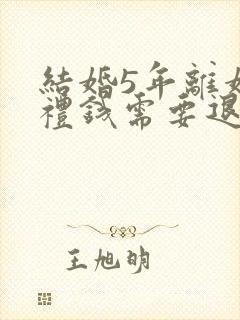 結婚5年離
禮錢需要退
王旭明